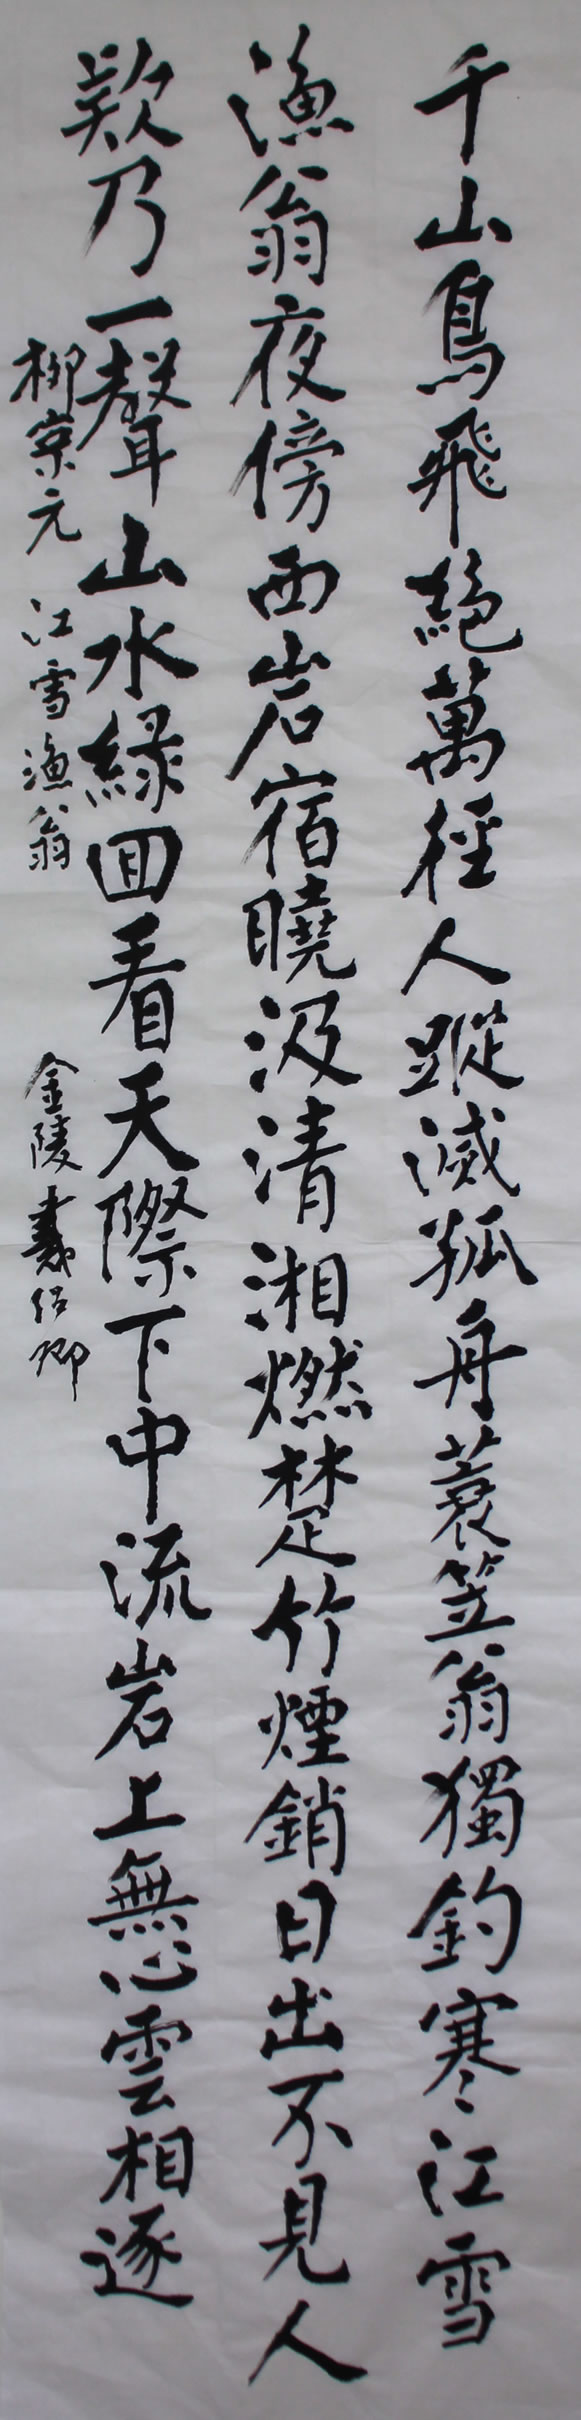 千山鳥飛絶萬徑人蹤滅孤舟蓑笠翁獨釣寒江雪
漁翁夜傍西岩宿曉汲清湘燃楚竹煙銷日出不見人
欵乃一聲山水緑回看天際下中流岩上無心雲相逐
柳宗元 江雪漁翁 金陵戴紹卿